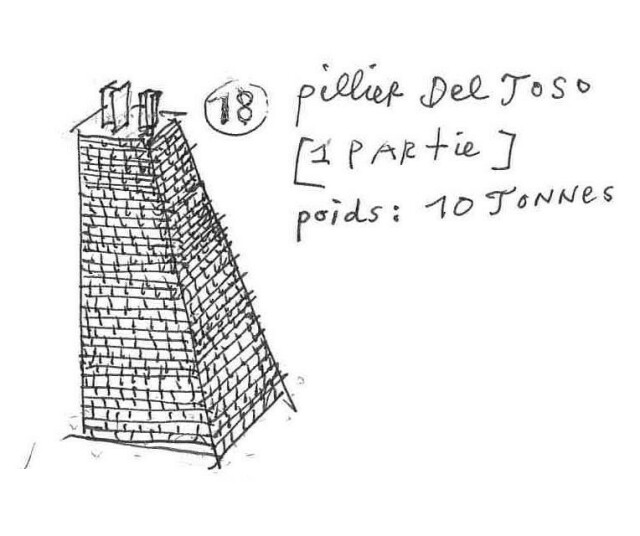 18 pillier Del Toso
[1 PARtie]
poids: 10 TONNES